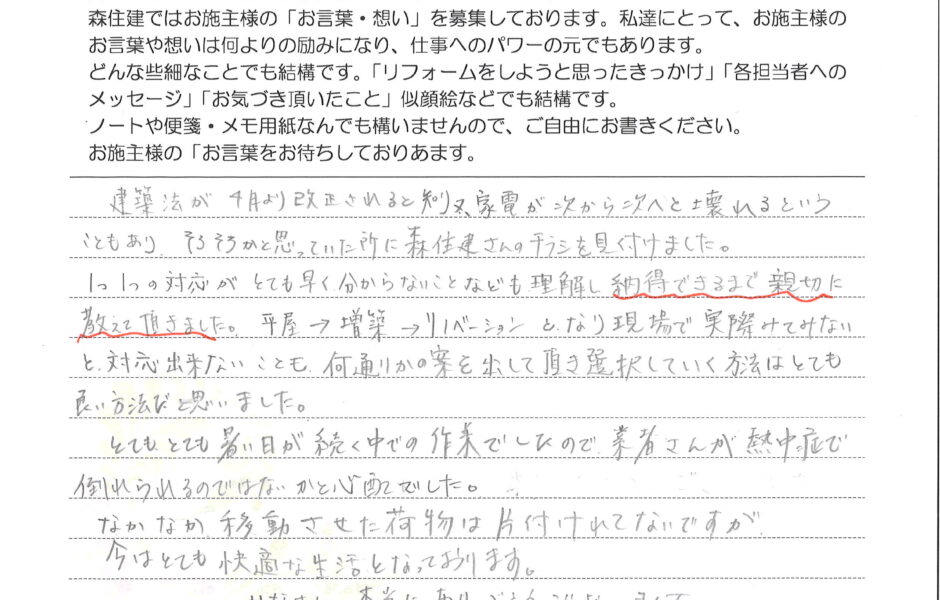 森住建ではお施主様の「お言葉・想い」を募集しております。私達にとって、お施主様の
お言葉や想いは何よりの励みになり、仕事へのパワーの元でもあります。
どんな些細なことでも結構です。「リフォームをしようと思ったきっかけ」「各担当者への
メッセージ」「お気づき頂いたこと」似顔絵などでも結構です。
ノートや便箋・メモ用紙なんでも構いませんので、ご自由にお書きください。
お施主様の「お言葉をお待ちしておりあます。
建築法が4月より改正されると知り又、家電が次から次へと壊れるという
こともあり、そろそろかと思っていた所に森住建さんのチラシを見付けました。
1つ1つの対応がとても早く分からないことなども理解し納得できるまで親切に
教えて頂きました。平屋→増築→リノベーションとなり現場で実際みてみない
と対応出来ないことも、何通りかの案を出して頂き選択していく方法はとても
良い方法だと思いました。
とてもとても暑い日が続く中での作業でしたので、業者さんが熱中症で
倒れられるのではないかと心配でした。
なかなか移動させた荷物は片付けれてないですが
今はとても快適な生活となっております。